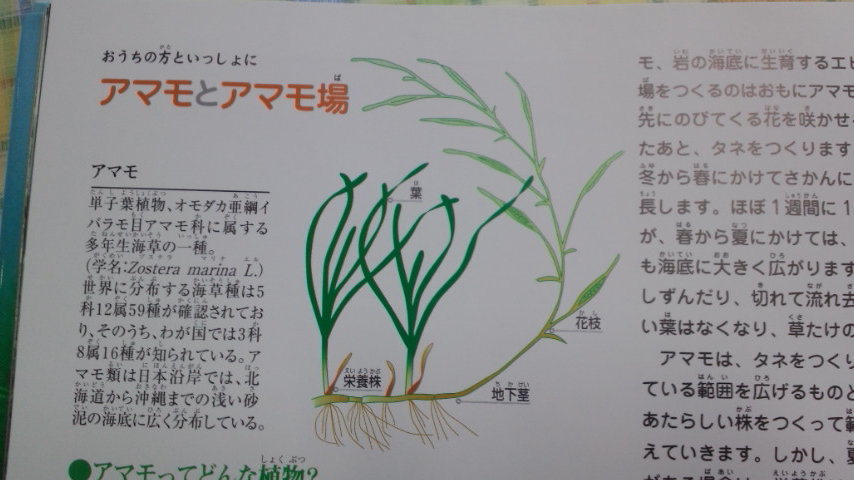 おうちの方といっしょに
アマモとアマモ場
アマモ
単子葉植物、オモダカ亜綱イ
バラモ目アマモ科に属する
多年生海草の一種。
(学名:Zostera marina L.)
世界に分布する海草種は5
科12属59種が確認されてお
り、そのうち、わが国では3科
8属16種が知られている。ア
マモ類は日本沿岸では、北
海道から沖縄までの浅い砂
泥の海底に広く分布している。
●アマモってどんな植物?
葉
花枝
栄養株
地下茎
モ、岩の海底に生育するエビ
場をつくるのはおもにアマモ
先にのびてくる花を咲かせ
たあと、タネをつくります
冬から春にかけてさかんに
長します。ほぼ1週間に1
が、春から夏にかけては、
も海底に大きく広がります
しずんだり、切れて流れ去
い葉はなくなり、草たけの
アマモは、タネをつくり
ている範囲を広げるものと
あたらしい株をつくって範
えていきます。しかし、夏